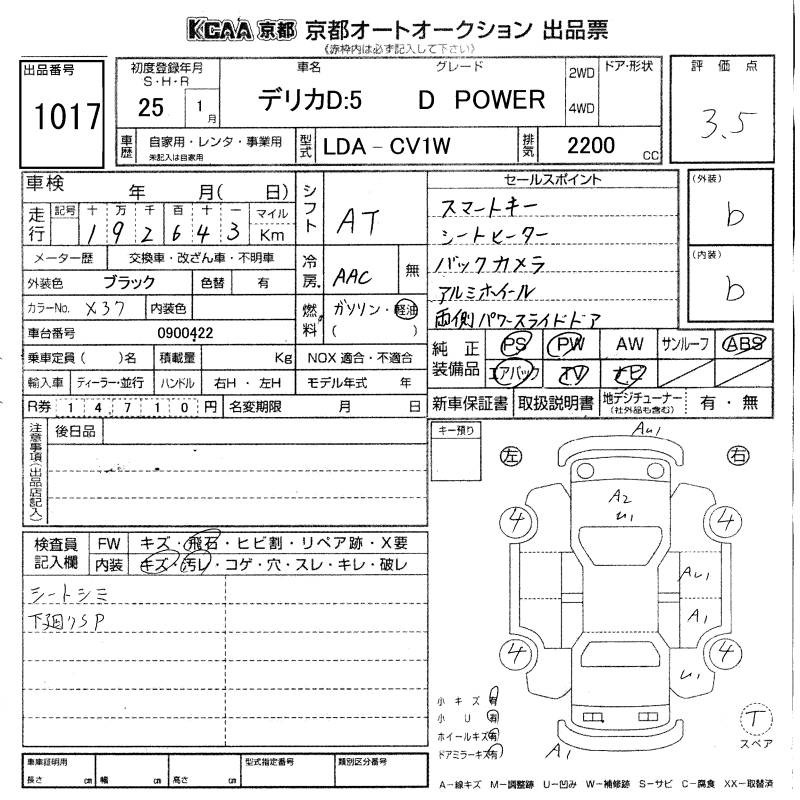 KCAA京都 京都オートオークション 出品票
《赤枠内は必ず記入して下さい》
出品番号
1017
初度登録年月
S・H・R
25 1月
車名
デリカD:5
グレード
D POWER
2WD
4WD
ドア・形状
評価点
3.5
車歴
自家用・レンタ・事業用
未記入は自家用
型式 LDA－CV1W
排気 2200 CC
車検 年 月( 日)
走行 記号 十 万 千 百 十 一 マイル
1 9 2 6 4 3 Km
メーター歴 交換車・改ざん車・不明車
外装色 ブラック 色替 有
カラーNo. X37 内装色
車台番号 0900422
乗車定員( )名 積載量 Kg NOX 適合・不適合
輸入車 ディーラー・並行 ハンドル 右H・左H モデル年式 年
R券 14,710円 名変期限 月 日
シフト AT
冷房 AAC 無
燃料 ガソリン・軽油
( )
セールスポイント
スマートキー
シートヒーター
バックカメラ
アルミホイール
両側パワースライドドア
(外装)
b
(内装)
b
純正装備品 PS PW AW サンルーフ ABS
エアバック TV ナビ
新車保証書 取扱説明書 地デジチューナー(社外品も含む) 有・無
注意事項(出品店記入)
後日品
検査員記入欄
FW キズ・飛石・ヒビ割・リペア跡・X要
内装 キズ・汚レ・コゲ・穴・スレ・キレ・破レ
シートシミ
下廻りSP
キー預り
左
右
AU1
A2
U1
4
4
AU1
A1
4
4
U1
A1
小キズ有
小U有
ホイールキズ有
ドアミラーキズ有
T
スペア
車庫証明用
長さ cm 幅 cm 高さ cm
型式指定番号
類別区分番号
A－線キズ M－調整跡 U－凹み W－補修跡 S－サビ C－腐食 XX－取替済